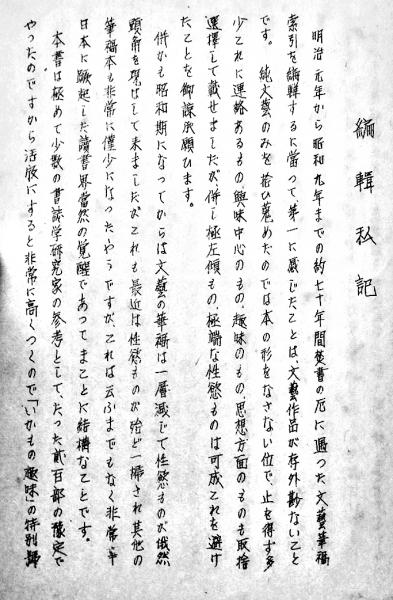 編輯私記
明治元年から昭和九年までの約七十年間焚書の厄に遇つた文藝華禍
索引を編輯するに當つて第一に感じたことは、文藝作品が存外尠ないこと
です。純文藝のみを拾ひ蒐めたのでは本の形をなさない位で、止を得ず多
少これに連絡あるもの、興味中心のもの、趣味のもの、思想方面のものも取捨
選擇して載せましたが、併し極左傾もの、極端な性慾ものは可成これを避け
たことを御諒承願ひます。
併かも昭和期になつてからは文藝の華禍は一層減じて性慾ものが俄然
頭角を現はして来ましたがこれも最近は性慾ものが殆ど一掃され其他の
筆禍本も非常に僅少になつたやうですが、これは云ふまでもなく非常
日本に蹶起した讀書界當然の覚醒であつてまことに結構なことです。
本書は極めて少数の書誌学研究家の参考として、たつた貳百部の豫定で
やつたのですから活版にすると非常に高くつくので「いかもの趣味」の特別